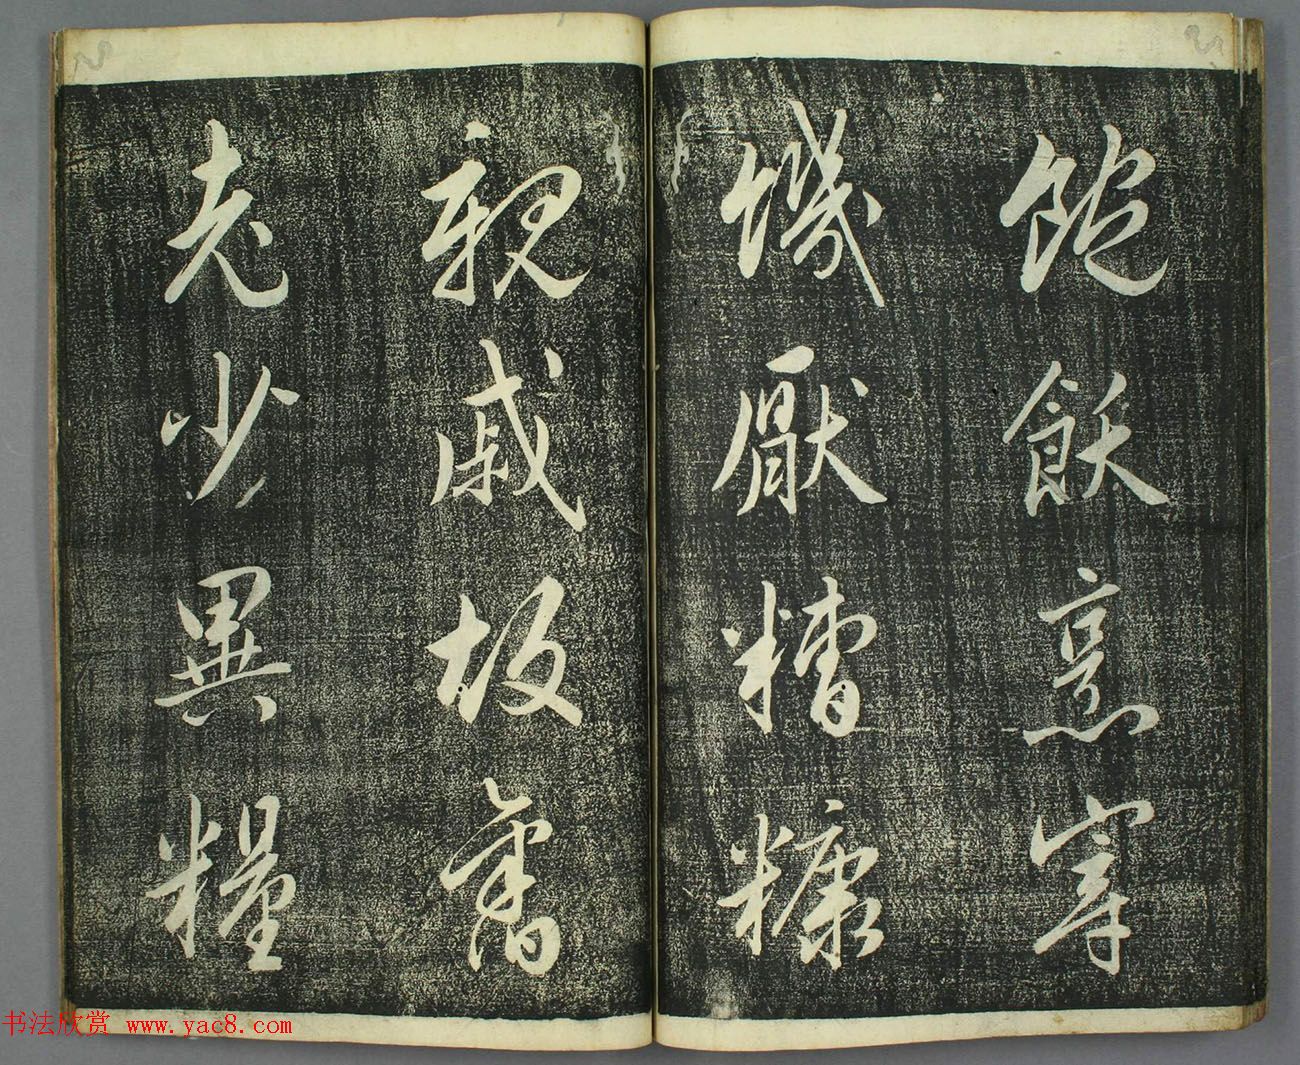 飽飫烹宰
饑厭糟糠
親戚故舊
老少異糧
书法欣赏 www.yac8.com